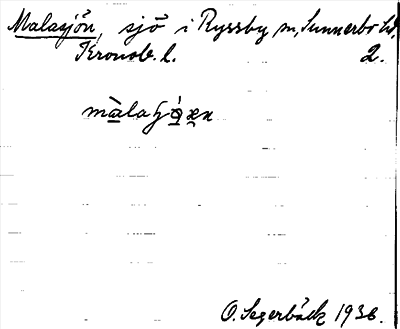 Malasjön, sjö i Ryssby sn, Sunnerbo hd,
Kronob. l. 2.
O. Segerbäck 1936.